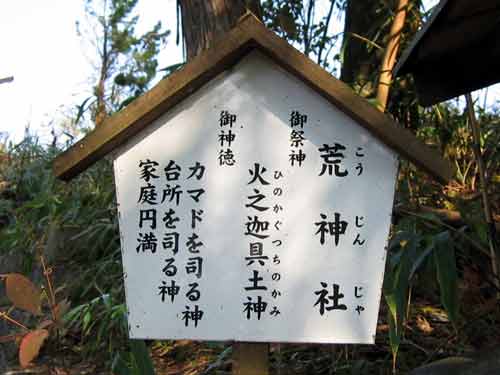 荒神社
こうじんじゃ
御祭神
火之迦具土神
ひのかぐつちのかみ
御神徳
カマドを司る神
台所を司る神
家庭円満